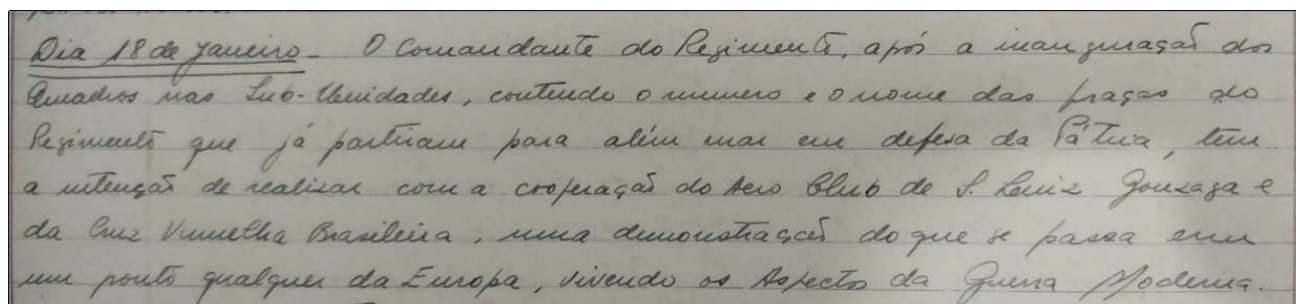 Dia 18 de Janeiro - O Comandante do Regimento, após a inauguração dos
Quadros nas Sub-Unidades, contendo o numero e o nome das praças do
Regimento que já partiram para além mar em defesa da Pátria, tem
a intenção de realizar com a cooperação do Aero Club de S. Luiz Gonzaga e
da Cruz Vermelha Brasileira, uma demonstração do que se passa em
um ponto qualquer da Europa, vivendo os Aspectos da Guerra Moderna.